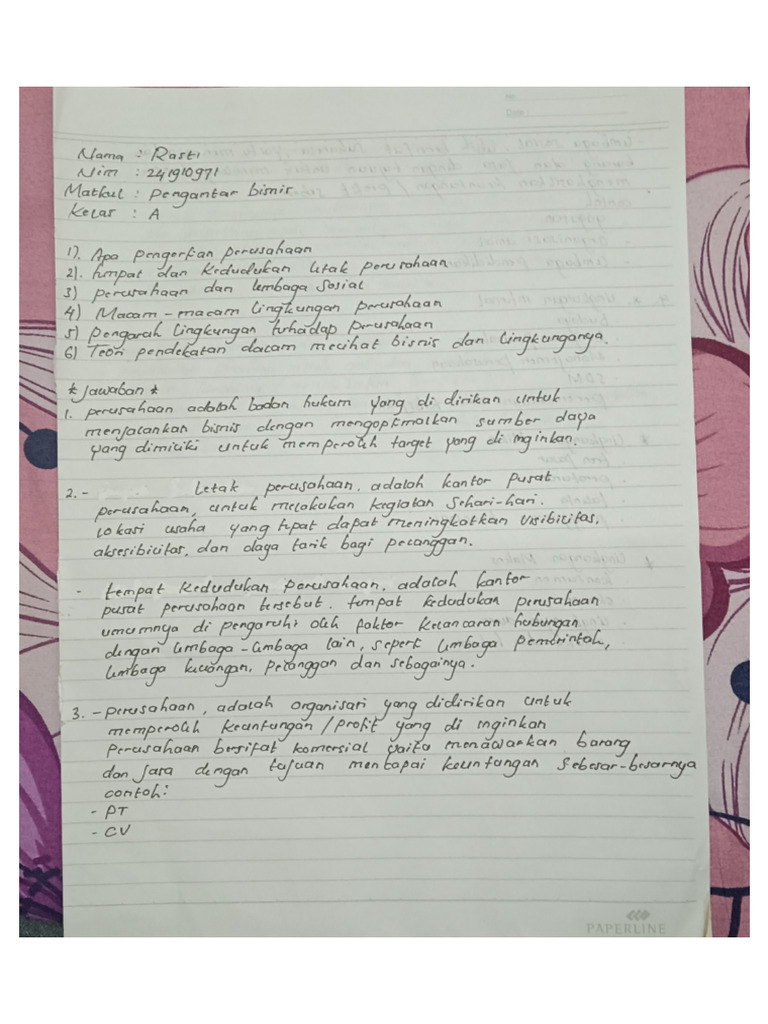 Nama : Rasti
Nim : 241910971
Matkul : pengantar bisnis
Kelas : A
1). Apa pengertian perusahaan
2). tempat dan kedudukan letak perusahaan
3) perusahaan dan lembaga sosial
4) Macam-macam lingkungan perusahaan
5) pengaruh lingkungan terhadap perusahaan
6) Teori pendekatan dalam melihat bisnis dan lingkunganya.
* Jawaban *
1. perusahaan adalah badan hukum yang di dirikan untuk
menjalankan bisnis dengan mengoptimalkan sumber daya
yang dimiliki untuk memperoleh target yang di inginkan.
2. - Letak perusahaan, adalah kantor pusat
perusahaan, untuk melakukan kegiatan sehari-hari.
lokasi usaha yang tepat dapat meningkatkan visibilitas,
aksesibilitas, dan daya tarik bagi pelanggan.
- tempat kedudukan perusahaan, adalah kantor
pusat perusahaan tersebut. tempat kedudukan perusahaan
umumnya di pengaruhi oleh faktor kelancaran hubungan
dengan lembaga-lembaga lain, seperti lembaga pemerintah,
lembaga keuangan, pelanggan dan sebagainya.
3. - perusahaan, adalah organisasi yang didirikan untuk
memperoleh keuntungan/profit yang di inginkan
perusahaan bersifat komersial yaitu menawarkan barang
dan jasa dengan tujuan mencapai keuntungan sebesar-besarnya
contoh:
- PT
- CV
PAPERLINE